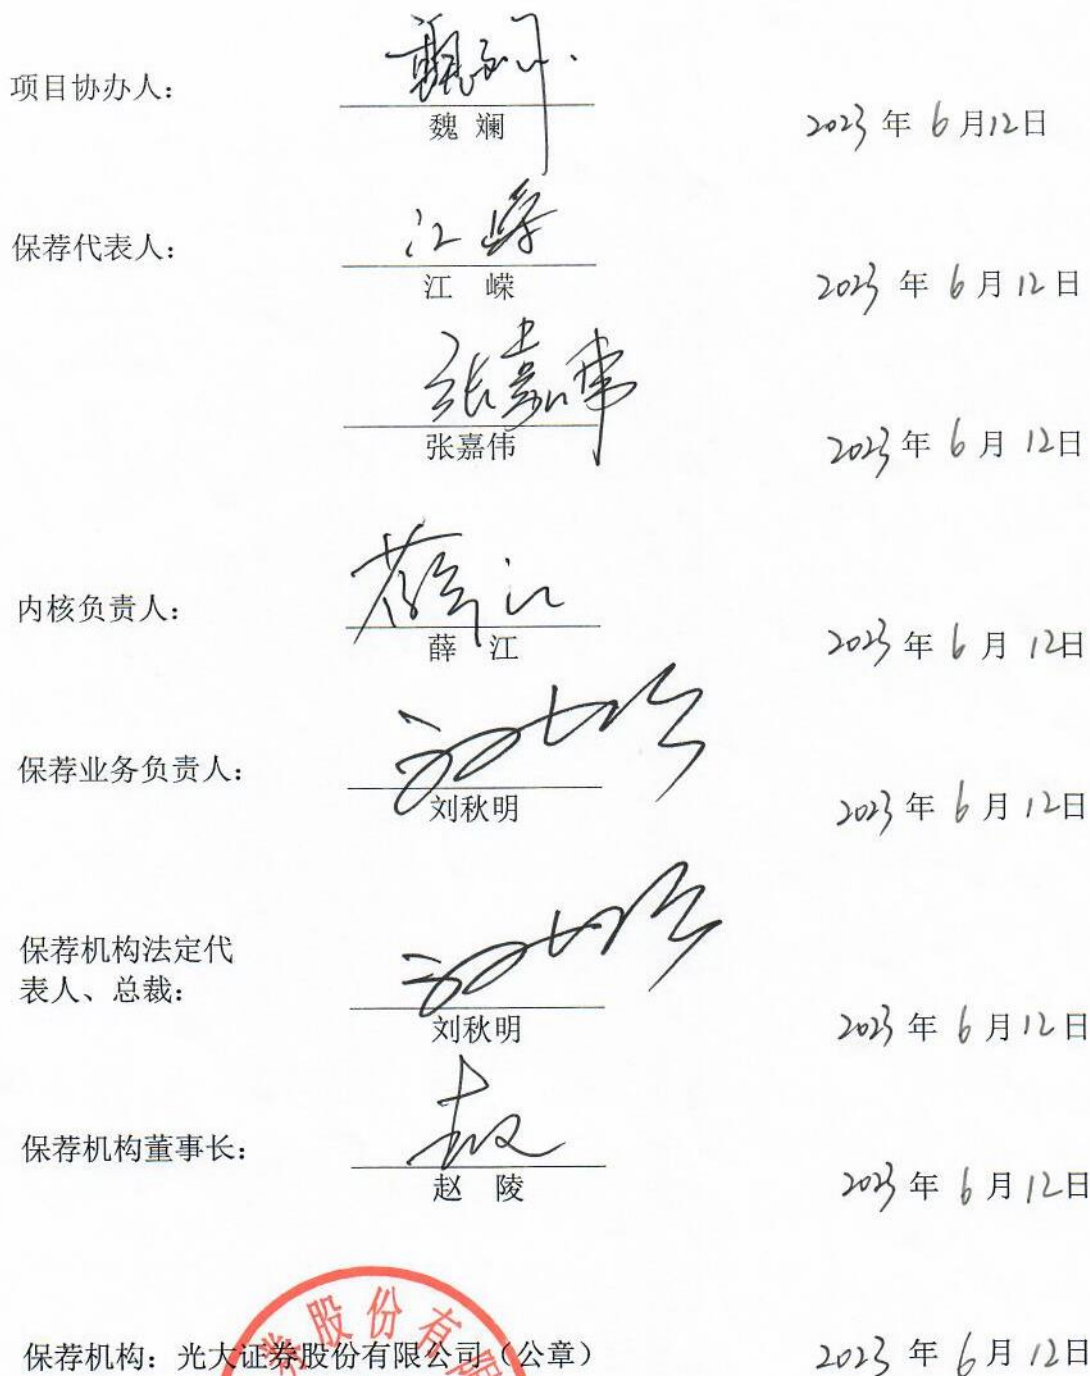 项目协办人：
魏 斓
2023 年 6 月 12 日
保荐代表人：
江 嵘
2023 年 6 月 12 日
张嘉伟
张嘉伟
2023 年 6 月 12 日
内核负责人：
薛江
薛 江
2023 年 6 月 12 日
保荐业务负责人：
刘秋明
2023 年 6 月 12 日
保荐机构法定代
表人、总裁：
刘秋明
2023 年 6 月 12 日
保荐机构董事长：
赵 陵
2023 年 6 月 12 日
券股份有限
保荐机构：光大证券股份有限公司（公章）
2023 年 6 月 12 日